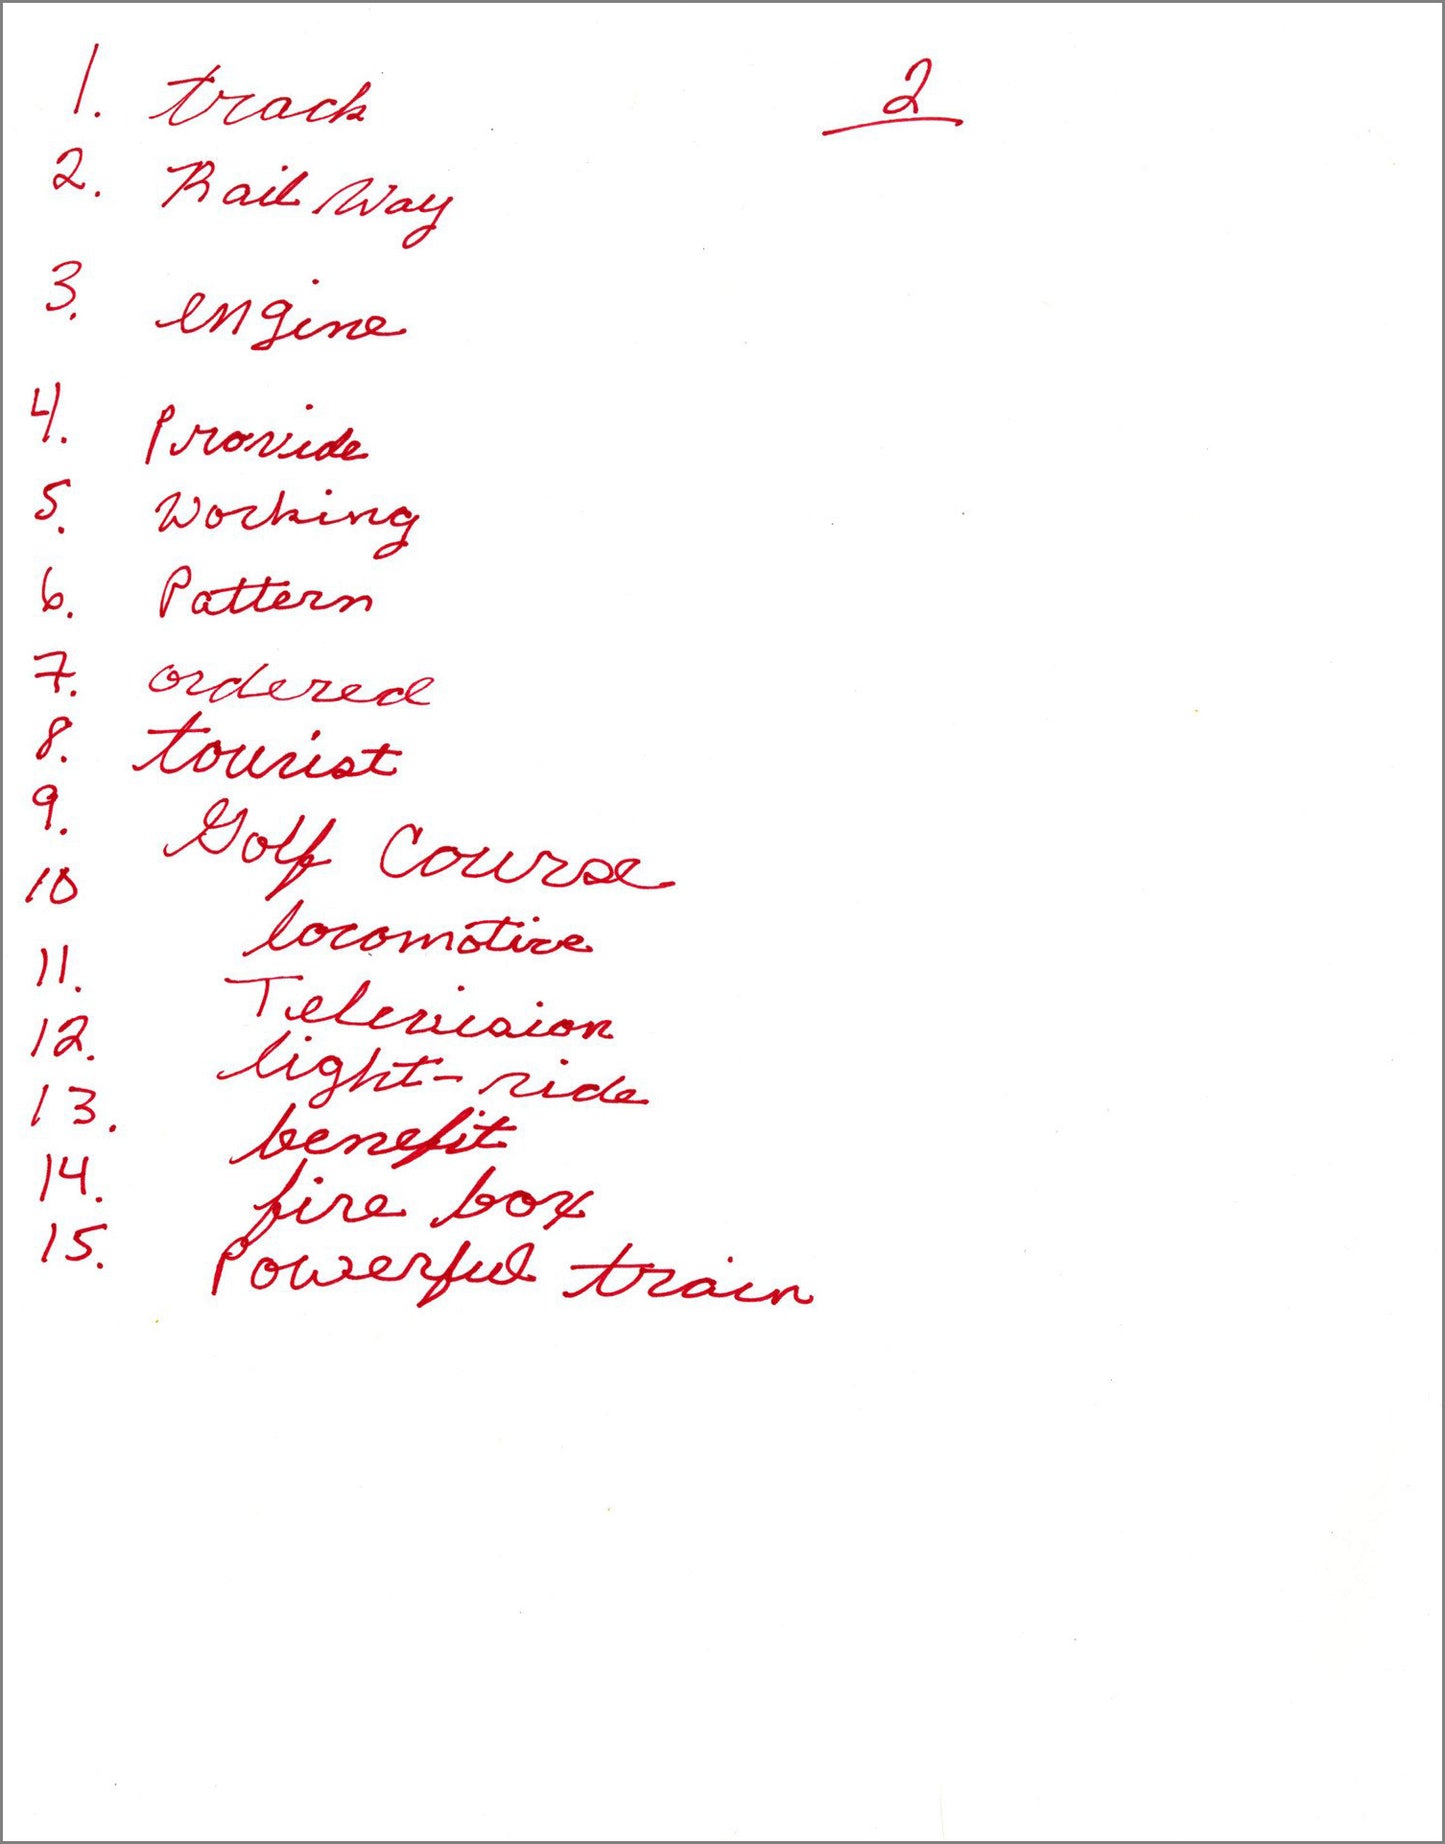 1. track
2
2. Rail Way
3. engine
4. Provide
5. Working
6. Pattern
7. ordered
8. tourist
9. Golf Course
10 locomotive
11. Television
12. light-ride
13. benefit
14. fire box
15. Powerful train